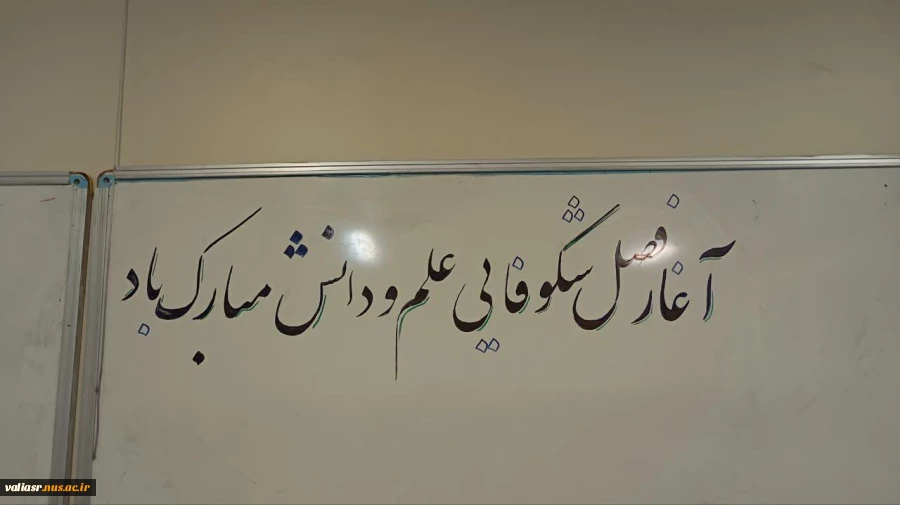 آغاز فصل شکوفایی علم و دانش مبارک باد
valiasr.nus.ac.ir